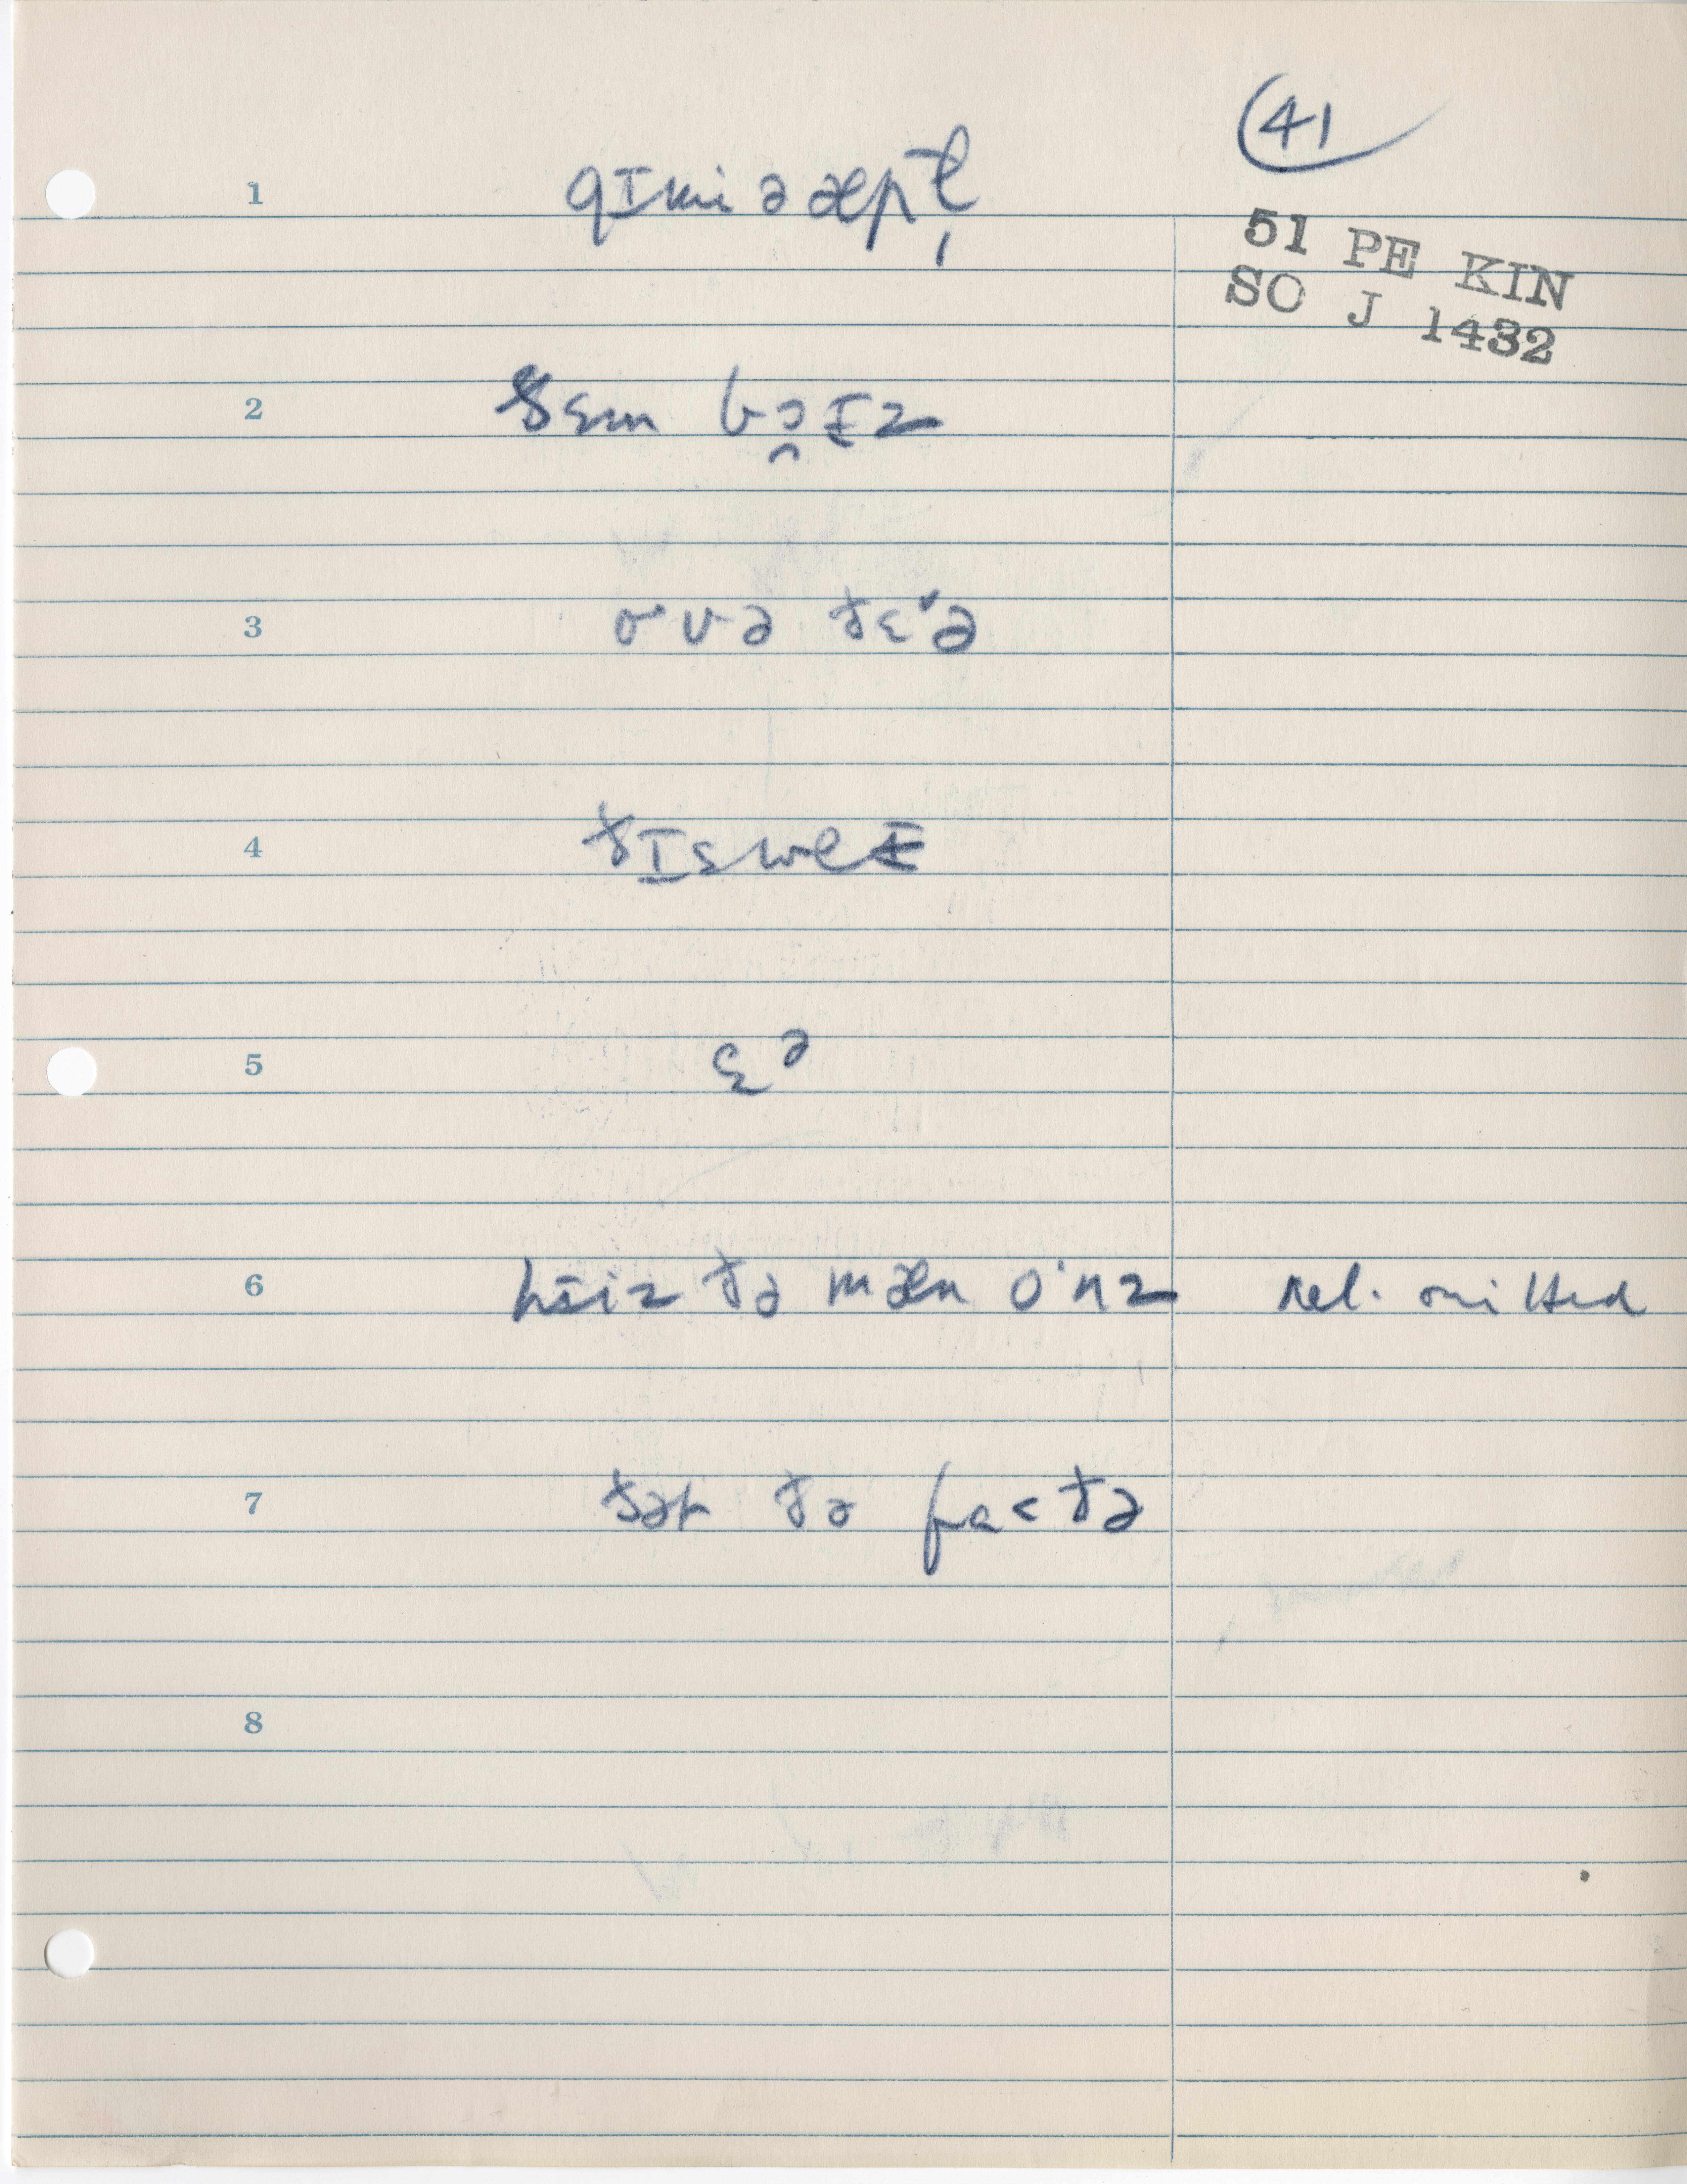 41
51 PE KIN
SO J 1432
1 gɪmi ə æpɫ̩
2 ðɛm bɔ̯ɪz
3 oˑvə ðɛˑə
4 ðɪs weɪ
5 ɛə
6 hiiz ðə mæn oˑnz rel. omitted
7 ðət ðə fa<ðə
8